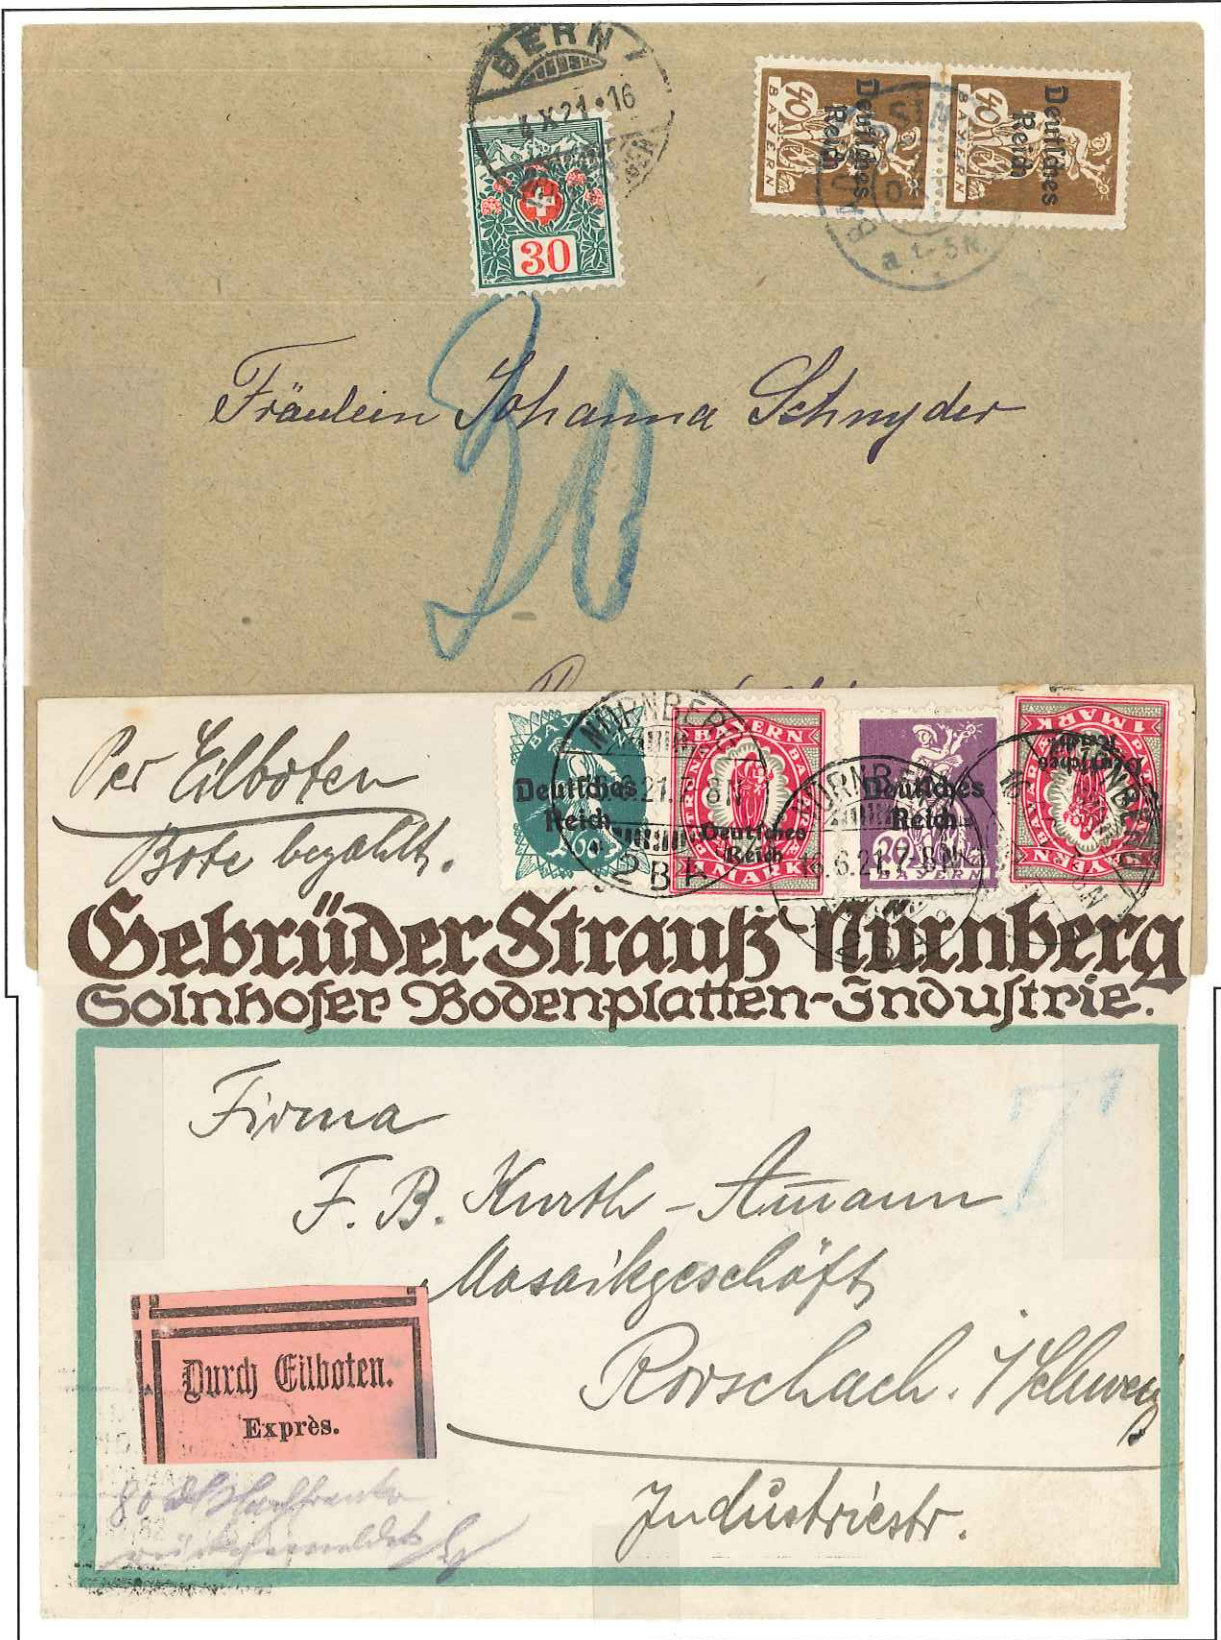 BERN 1
X 21 • 16
30
40
BAYERN
Deutsches
Reich
40
BAYERN
Deutsches
Reich
a 4-5 N.
Fräulein Johanna Schnyder
30
Per Eilboten
Bote bezahlt.
NÜRNBERG
Deutsches
Reich
60
2 B P
BAYERN
Deutsches
Reich
1 MARK
NÜRNBERG
16.6.21.7-8N
Deutsches
Reich
20
BAYERN
1 MARK
Deutsches
Reich
BAYERN
Gebrüder Strauß-Nürnberg
Solnhofer Bodenplatten-Industrie.
T
Firma
F. B. Kurth-Amann
Mosaikgeschäft
Rorschach. i/Schweiz
Industriestr.
Durch Eilboten.
Exprès.
80